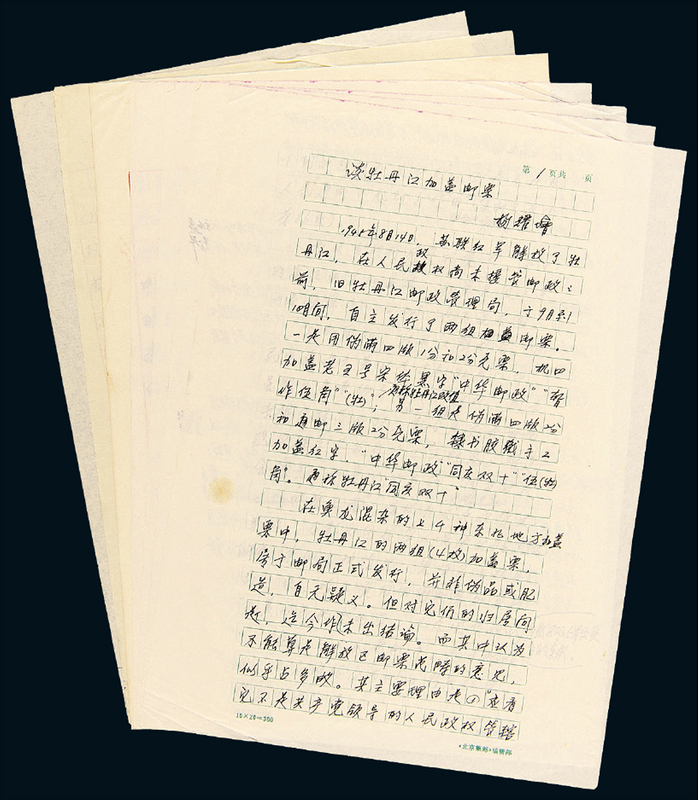 第1页共 页
谈牡丹江加盖邮票
杨耀增
1945年8月14日，苏联红军解放了牡
丹江，在人民政权尚未接管邮政之
前，旧牡丹江邮政管理局，于9月到
10月间，自主发行了两组加盖邮票。
一是用伪满四版1分和2分邮票，机口
加盖老五号宋体黑字“中华邮政”“暂
作伍角”“(牡)”，原称牡丹江改值
另一组是伪满四版2分
和通邮三版2分邮票，隶书胶戳手工
加盖红字 “中华邮政”“同庆双十”“伍(牡)
角”。原称牡丹江“同庆双十”
在鱼龙混杂的上千种东北地方加盖
票中，牡丹江的两组(4枚)加盖票，
属于邮局正式发行，并非伪品或臆
造，自无疑义。但对它们的归属问
题，迄今作未出结论。而其中认为
不能算是解放区邮票范畴的意见，
似乎占多数。其主要理由是①“查看
它不是共产党领导的人民政权管辖
15×20=300
《北京集邮》编辑部